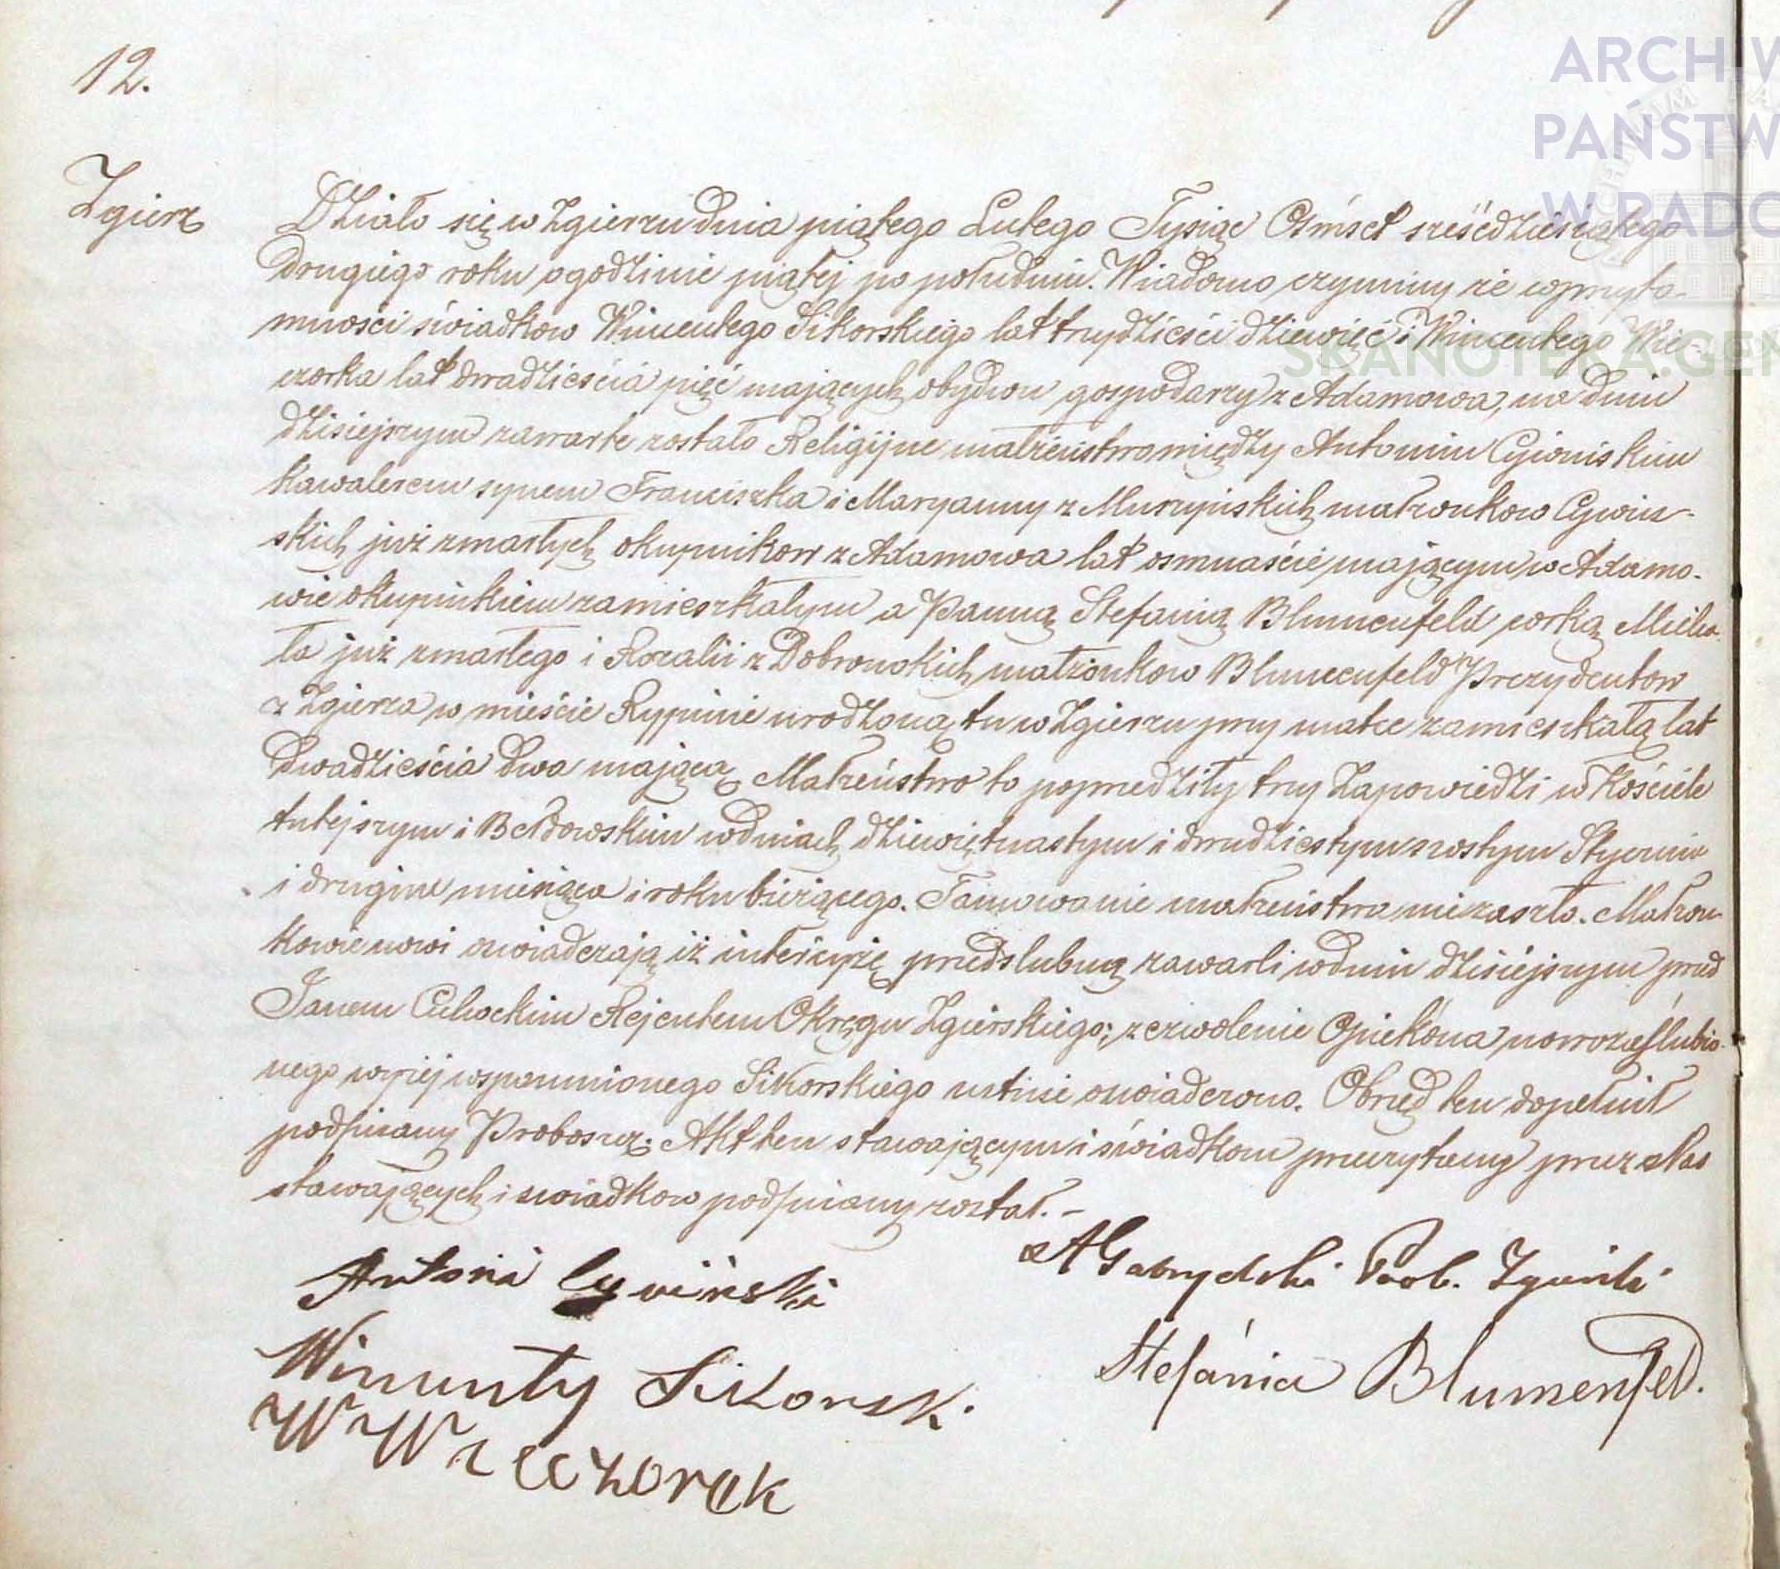 12.
Zgierz
Działo się w Zgierzu dnia piątego Lutego Tysiąc Ośmset sześćdziesiątego
drugiego roku o godzinie piątej po południu. Wiadomo czyniemy że w przyto-
mności świadkow Wincentego Sikorskiego lat trzydzieści dziewięć i Wincentego Wie-
czorka lat dwadzieścia pięć mających obydwu gospodarzy z Adamowa, na dniu
dzisiejszym zawarte zostało Religijne małżeństwo między Antonim Cywinskim
kawalerem synem Franciszka i Maryanny z Murzyńskich małżonkow Cywin-
skich już zmarłych okupnikow z Adamowa lat osmnaście mającym w Adamo-
wie okupnikiem zamieszkałym a Panną Stefanią Blumenfeld corką Micha-
ła już zmarłego i Rozalii z Dobrowskich małżonkow Blumenfeld Prezydentow
z Zgierza w mieście Rypinie urodzoną tu w Zgierzu przy matce zamieszkałą lat
dwadzieścia dwa mającą. Małżeństwo to poprzedziły trzy Zapowiedzi w Kościele
tutejszym i Bełdowskim w dniach dziewiętnastym i dwudziestym szostym Stycznia
i drugim miesiąca i roku bieżącego. Tamowanie małżeństwa nie zaszło. Małżon-
kowie nowi oswiadczają iż intercyzę przedslubną zawarli w dniu dzisiejszym przed
Janem Cichockim Rejentem Okręgu Zgierskiego; zezwolenie Opiekóna nowozaślubio-
nego wyżej wspomnionego Sikorskiego ustnie oswiadczono. Obrzęd ten dopełnił
podpisany Proboszcz. Akt ten stawającym i świadkom przeczytany przez Nas
stawających i swiadkow podpisany został. –
Antoni Cywiński
Prob. Zgierski
Wincenty Sikorski
Stefánia Blumenfeld.
W Wieczorek
ARCHIW
PAŃSTW
W RADO
SKANOTEKA.GEN